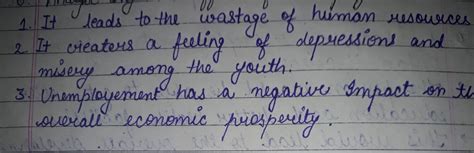 1. It leads to the wastage of human resources
2. It creaters a feeling of depressions and
misery among the youth.
3. Unemployement has a negative impact on
overall economic prosperity.